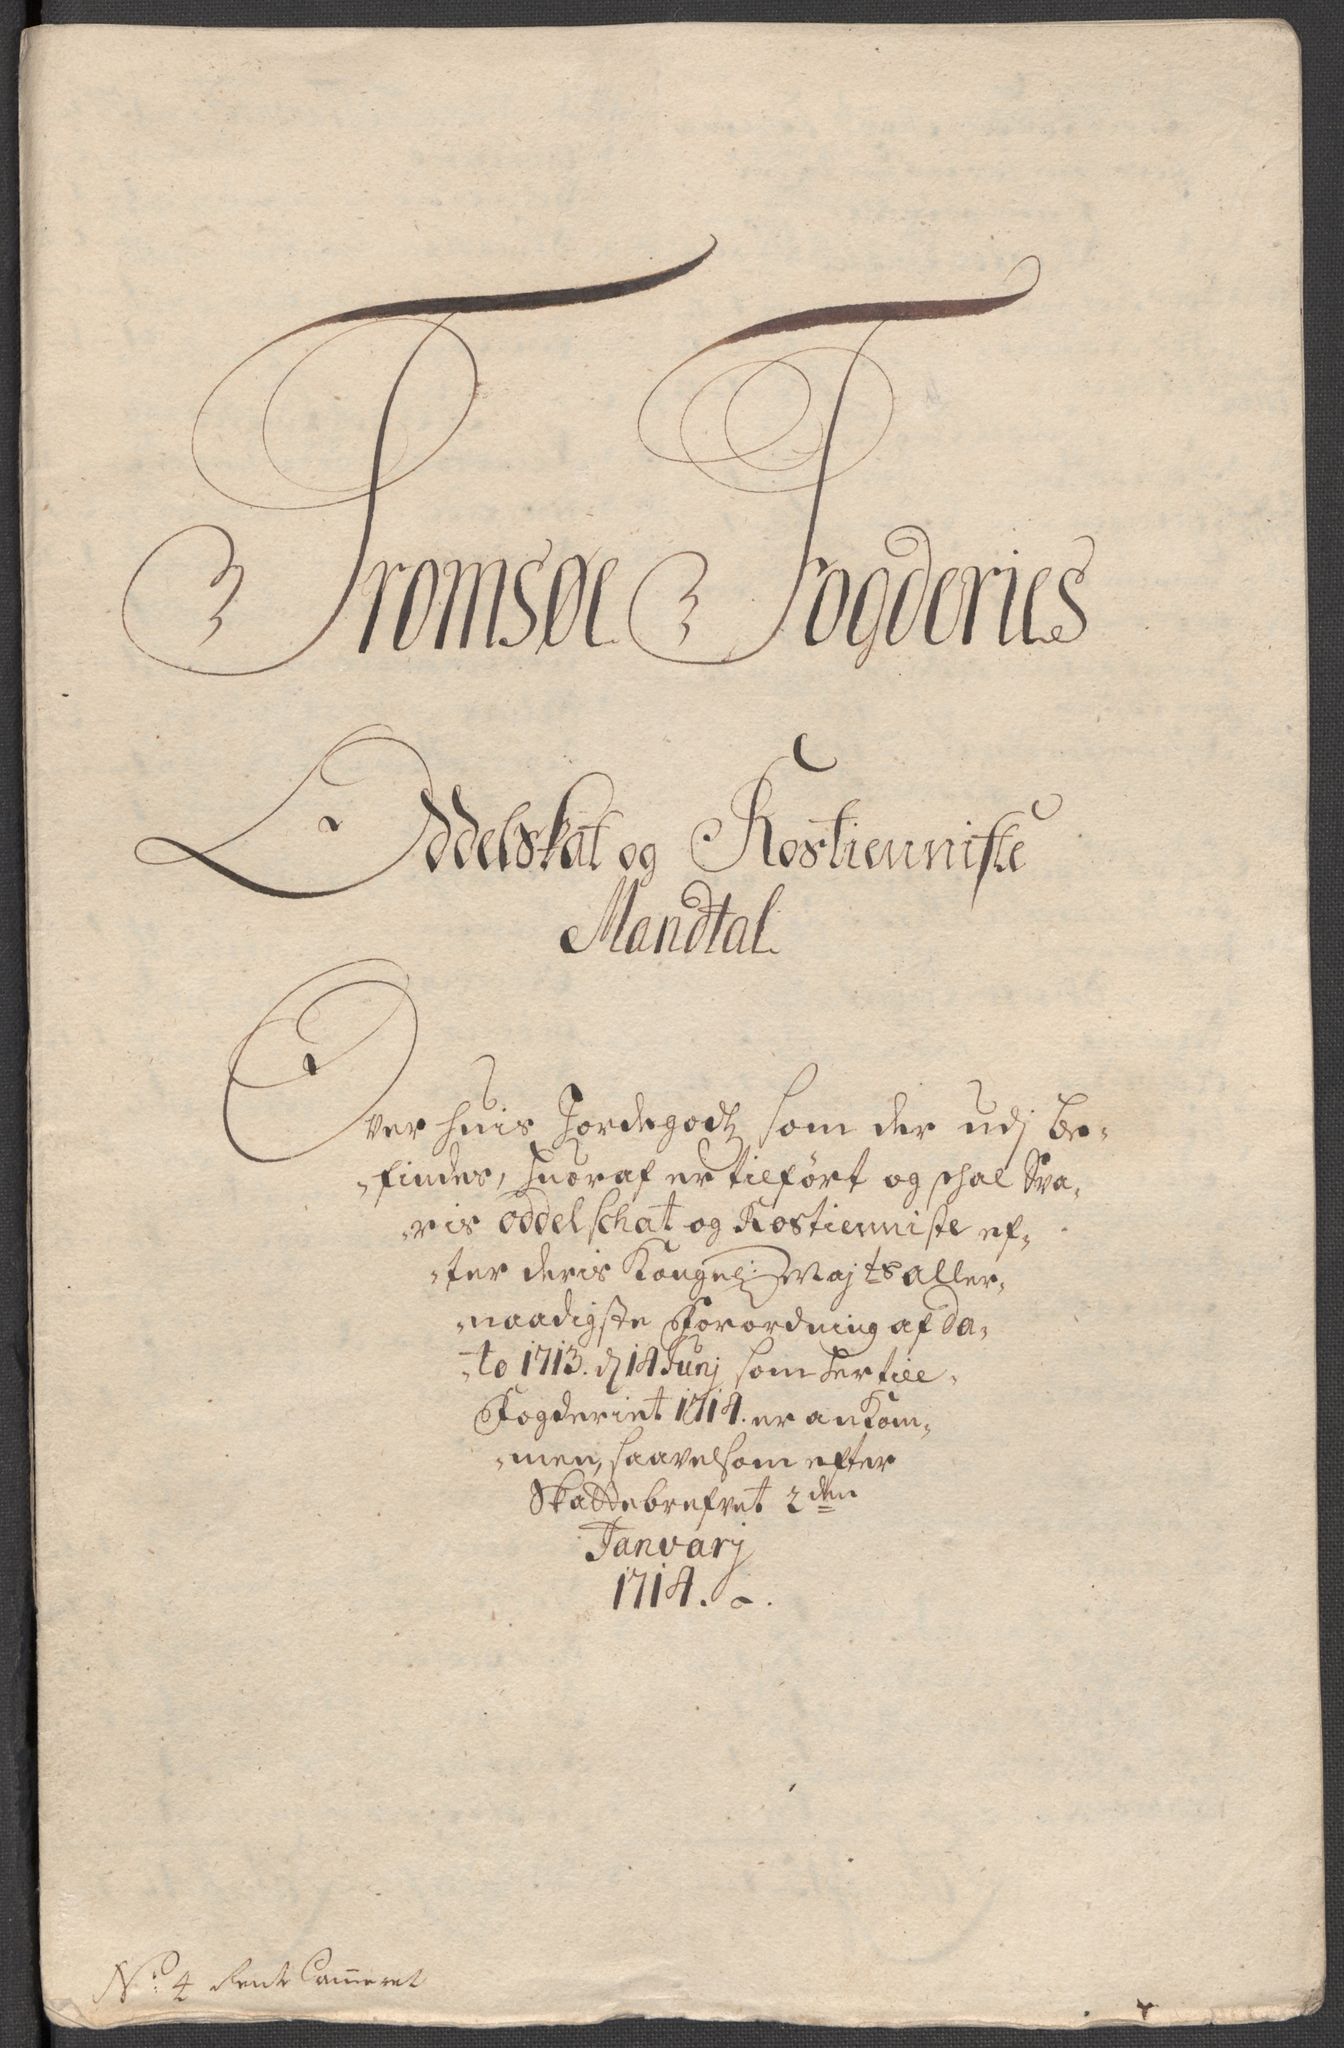 Tromsøe Fogderies
Oddelskat og Rostienniste
Mandtal.
Over huis Jordegodtz som der udj be-
-findes, huoraf er tilført og schal Sva-
-ris oddelschat og Rostienniste ef-
-ter deris Kongel: Majts aller-
-naadigste Forordning af Da-
-to 1713. d 14 Junj som her till
Fogderiet 1714. er ankom-
-men, saavelsom efter
Skattebrefvet 2den
Janvarj
1714.
No: 4 Rente Cammeret